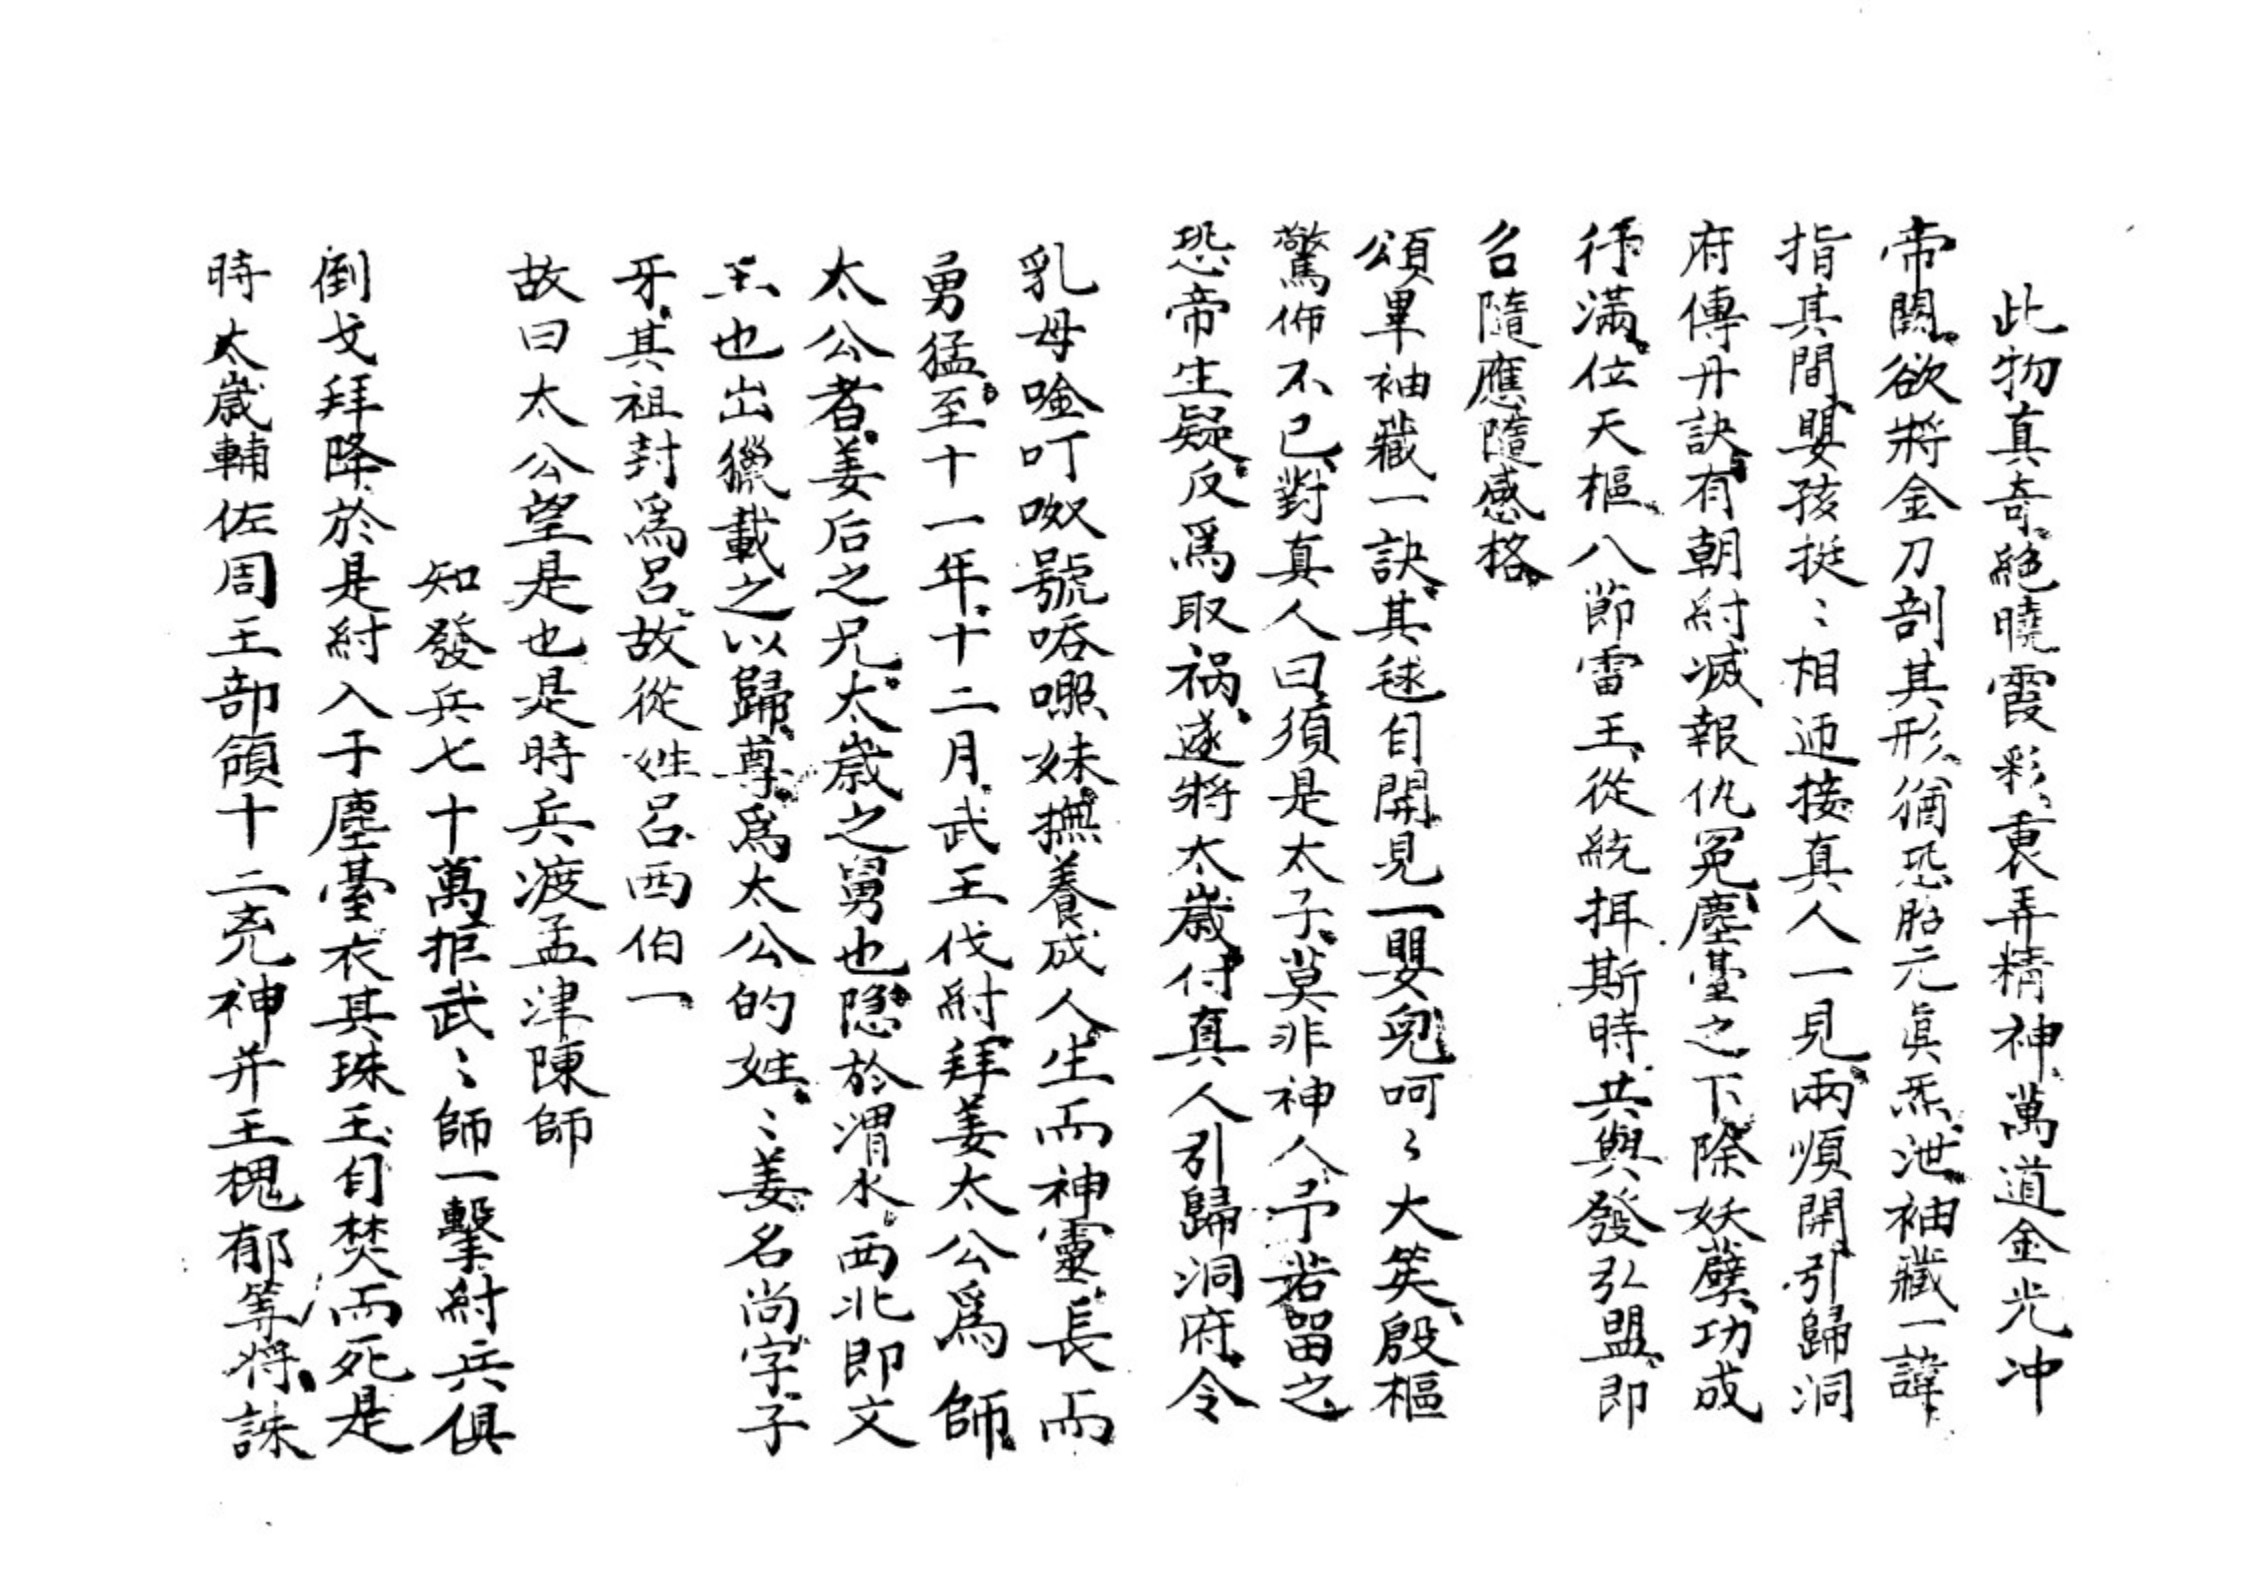 此物真奇絕曉霞彩裹弄精神萬道金光冲
帝闕欲將金刀剖其形猶恐胎元真炁泄袖藏一諱
指其間嬰孩挺〻相迊接真人一見兩順開引歸洞
府傳丹訣有朝紂滅報仇冤塵臺之下除妖孽功成
行滿位天樞八節雷王從統揖斯時共與發弘盟即
召隨應隨感格
頌畢袖藏一訣其毬自開見一嬰兒呵〻大笑殷樞
驚佈不已對真人曰須是太子莫非神人予若留之
恐帝生疑反爲取禍遂將太歲付真人引歸洞府令
乳母唫叮呶號呑嚈妹撫養成人生而神靈長而
勇猛至十一年十二月武王伐紂拜姜太公爲師
太公者姜后之兄太歲之舅也隱於渭水西北即文
王也出獵載之以歸尊爲太公的姓〻姜名尚字子
牙其祖封爲呂故從姓呂西伯一
故曰太公望是也是時兵渡孟津陳師
知發兵七十萬拒武〻師一擊紂兵俱
倒戈拜降於是紂入于塵臺衣其珠玉自焚而死是
時太歲輔佐周王部領十二充神并王槐郁等將誅